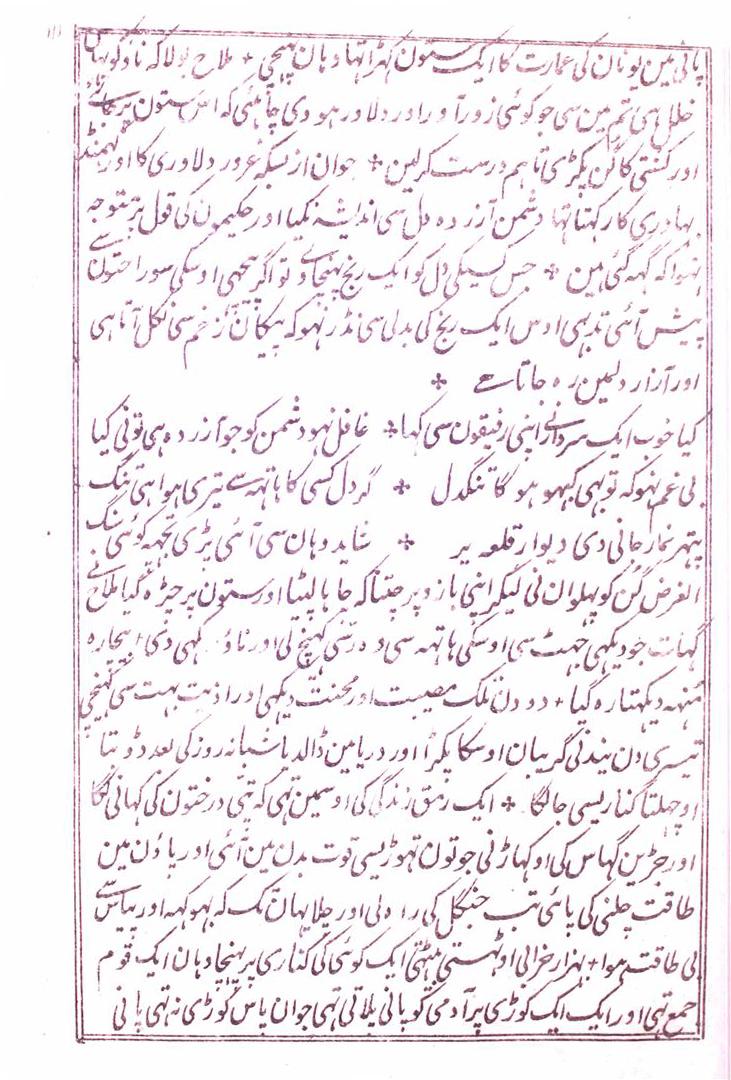 پانی مین یونان کی عمارت کا ایک ستون کہڑا تہا وہان پہنچی + ملاح بولا کہ ناؤ کو یہان
خلل ہی تم مین سی جو کوئی زورآور اور دلاور ہووی چاہئی کہ اس ستون پر جاے
اور کشتی کا گن پکڑی تا ہم درست کرلین + جوان ازبسکہ غرور دلاوری کا اور گہمنڈ
بہادری کا رکہتا تہا دشمن آزردہ دل سی اندیشہ نکیا اور حکیمون کی قول پر متوجہ
نہوا کہ کہہ گئی ہین + جس کسیکی دل کو ایک رنج پہنچاوے تو اگر پیچہی اوسکی سو راحتون سے
پیش آئی تد بہی اوس ایک رنج کی بدلی سی نڈر نہو کہ پیکان زخم سی نکل آتا ہی
اور آزار دلمین رہ جاتا ہے +
کیا خوب ایک سردار نے اپنی رفیقون سی کہا + غافل نہو دشمن کو جو آزردہ ہی تونی کیا
بی غم نہو کہ تو بہی کبہو ہوگا تنگدل + گر دل کسی کا ہاتہہ سے تیری ہوا ہی تنگ
پتہر نمار جانی دی دیوار قلعہ پر + شاید وہان سی آئی پڑی تجہہ کوئی سنگ
الغرض گن کو پہلوان نی لیکر اپنی بازو پر جتنا کہ چاہا لپٹیا اور ستون پر چڑہ گیا ملاح نے
گہات جو دیکہی جہٹ سی اوسکی ہاتہہ سی وہ رسی کہینچ لی اور ناؤ کہی دی + بیچارہ
منہہ دیکہتا رہ گیا + دو دن تلک مصیبت اور محنت دیکہی اور اذیت بہت سی کہینچی
تیسری دن نیند نی گریبان اوسکا پکڑا اور دریا مین ڈالدیا شبانہ روز کی بعد ڈوبتا
اوچہلتا کناریسی جا لگا + ایک رمق زندگی کی اوسمین تہی کہ پتی درختون کی کہانی لگا
اور جڑین گہاس کی اوکہاڑنی جو تون تہوڑیسی قوت بدن مین آئی اور پاؤن مین
طاقت چلنی کی پائی تب جنگل کی راہ لی اور چلا یہان تک کہ بہوکہہ اور پیاس سے
بی طاقت ہوا + بہزار خرابی اوٹہتی بیٹہتی ایک کوئی کی کناری پر پہنچا وہان ایک قوم
جمع تہی اور ایک ایک کوڑی پر آدمی کو پانی پلاتی تہی جوان پاس کوڑی نہ تہی پانی